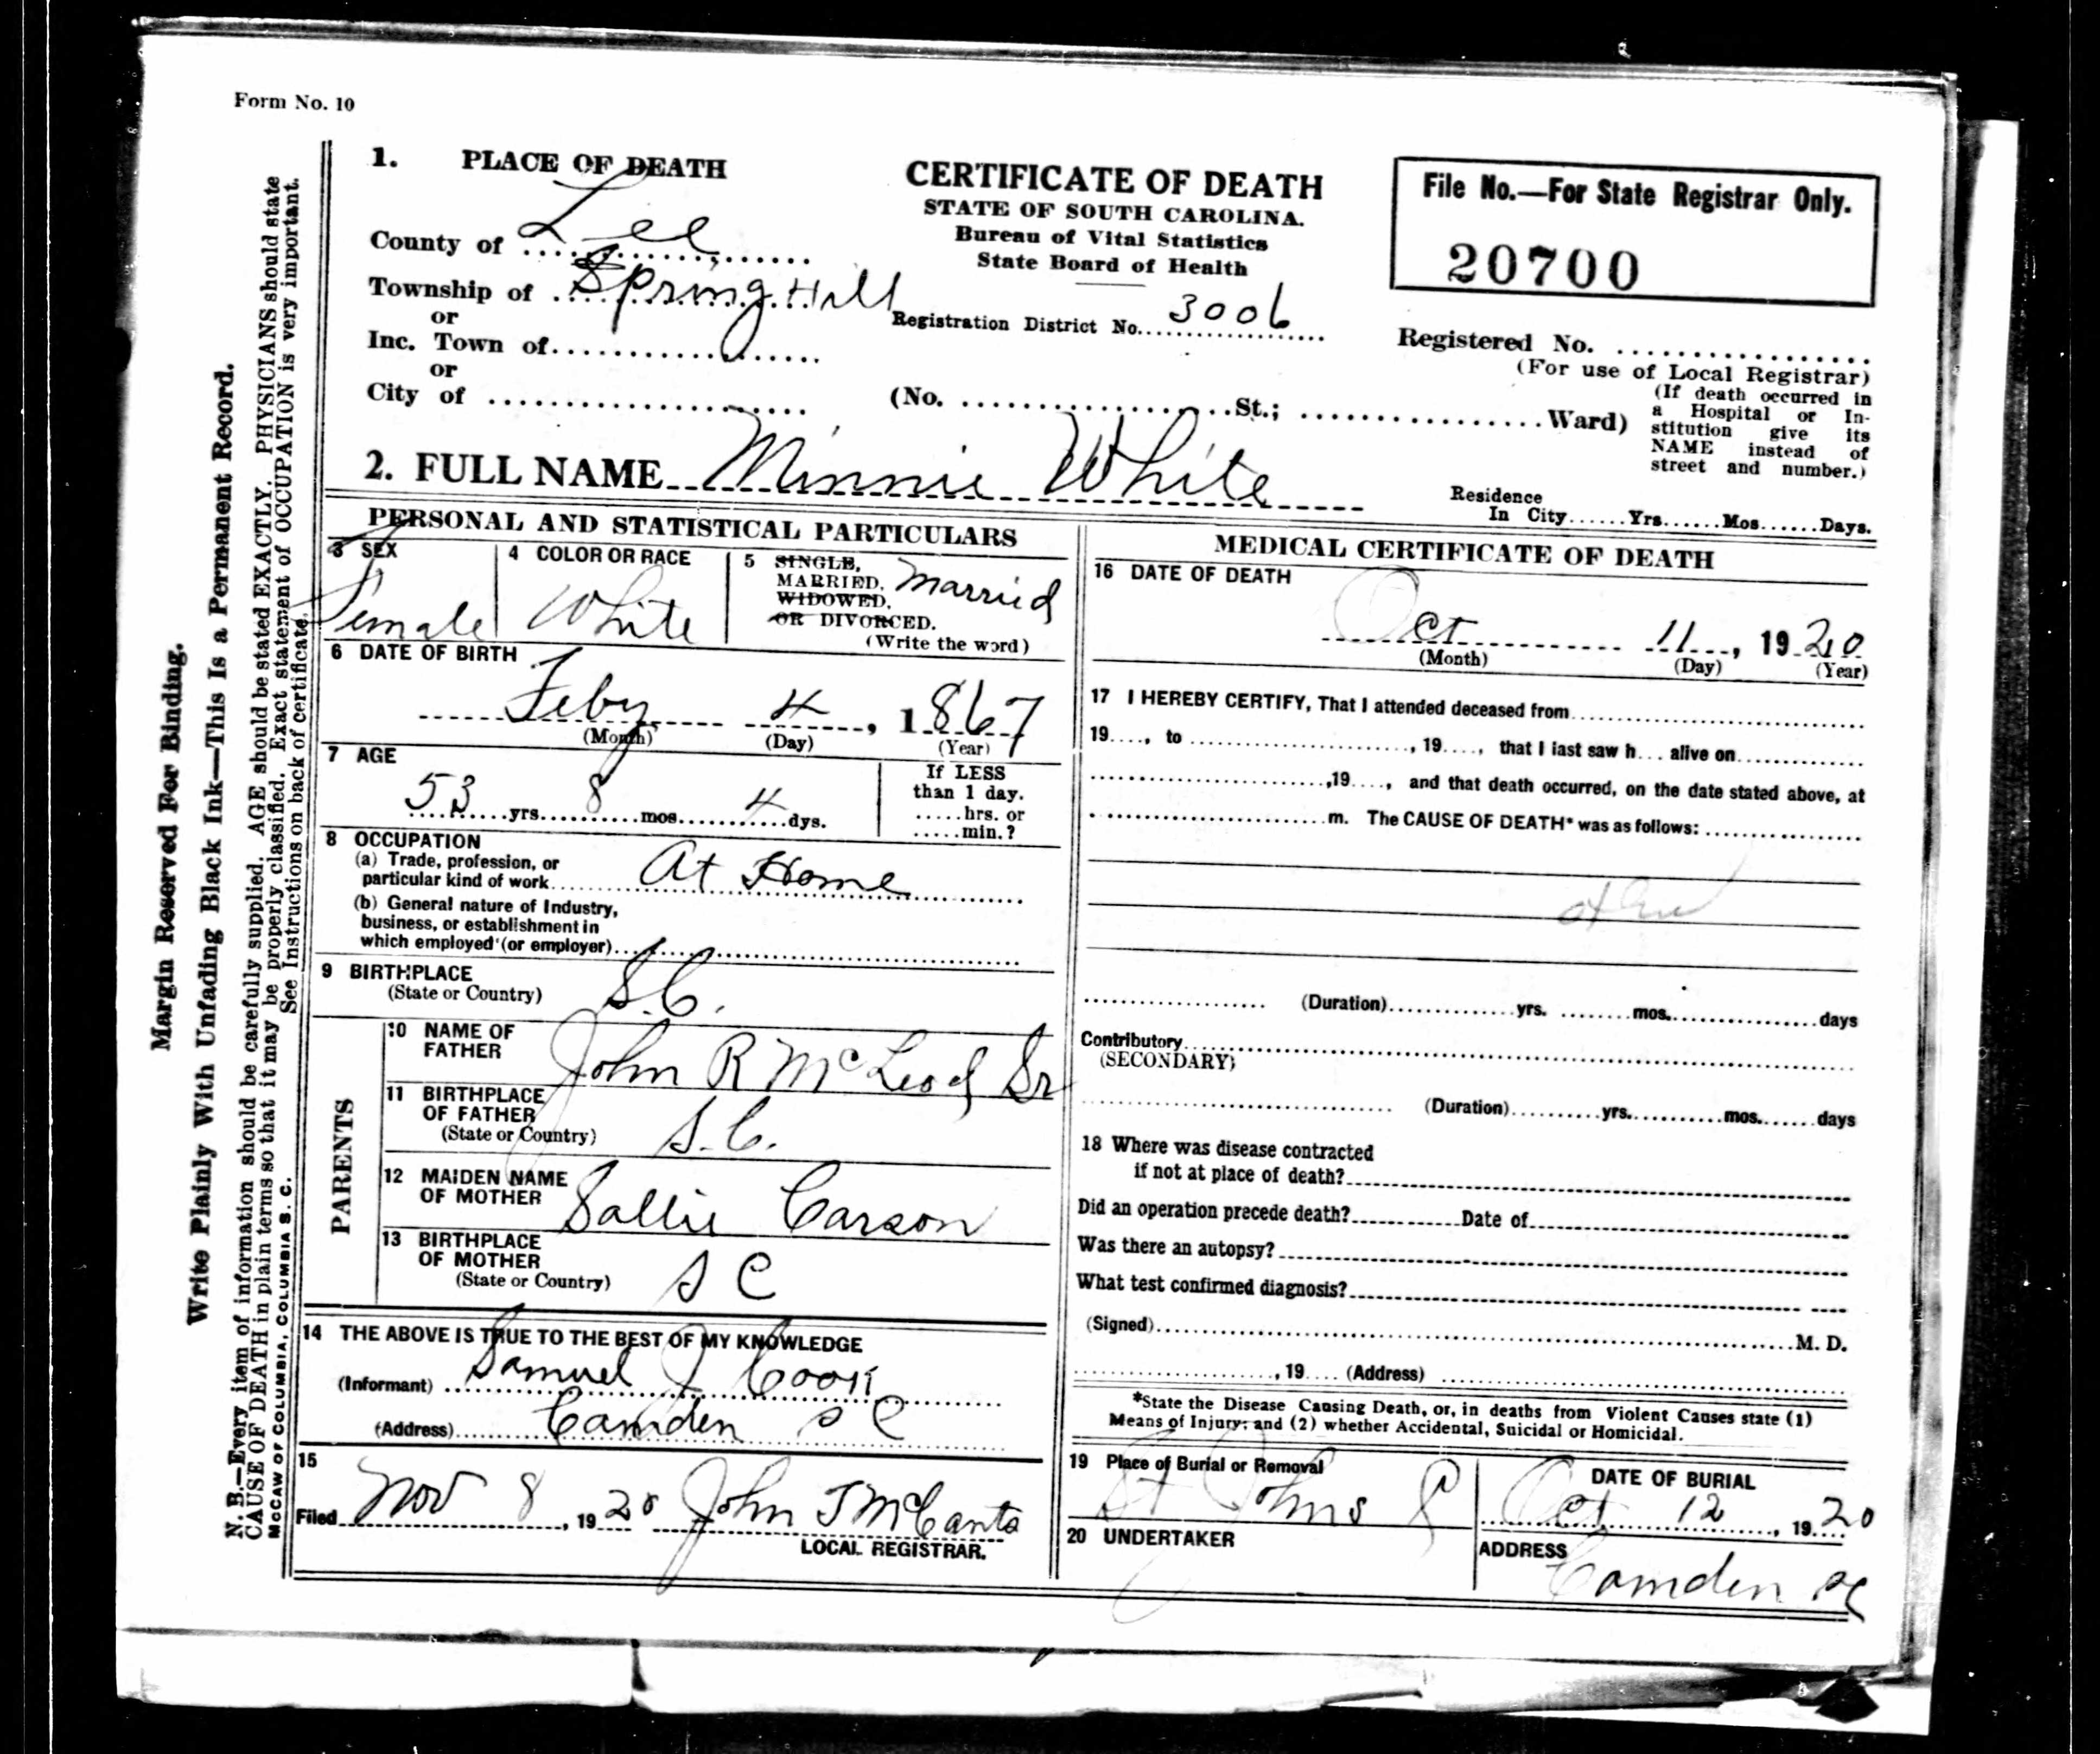 Form No. 10
1. PLACE OF DEATH
County of Lee
Township of Spring Hill
or
Inc. Town of
or
City of
CERTIFICATE OF DEATH
STATE OF SOUTH CAROLINA.
Bureau of Vital Statistics
State Board of Health
Registration District No. 3006
File No.—For State Registrar Only.
20700
Registered No.
(For use of Local Registrar)
(No. St.; Ward)
(If death occurred in
a Hospital or In-
stitution give its
NAME instead of
street and number.)
2. FULL NAME Minnie White
Residence
In City......Yrs......Mos......Days.
PERSONAL AND STATISTICAL PARTICULARS
3 SEX
Female
4 COLOR OR RACE
White
5 SINGLE,
MARRIED,
WIDOWED,
OR DIVORCED.
(Write the word)
Married
6 DATE OF BIRTH
Feby 4, 1867
(Month) (Day) (Year)
7 AGE
53 yrs. 8 mos. 4 dys.
If LESS
than 1 day.
.....hrs. or
.....min.?
8 OCCUPATION
(a) Trade, profession, or
particular kind of work At Home
(b) General nature of Industry,
business, or establishment in
which employed (or employer)
9 BIRTHPLACE
(State or Country) S.C.
PARENTS
10 NAME OF
FATHER John R McLeod Sr
11 BIRTHPLACE
OF FATHER
(State or Country) S.C.
12 MAIDEN NAME
OF MOTHER Sallie Carson
13 BIRTHPLACE
OF MOTHER
(State or Country) S C
14 THE ABOVE IS TRUE TO THE BEST OF MY KNOWLEDGE
(Informant) Samuel J Cook
(Address) Camden S C
15
Filed Nov 8, 1920 John J McCants
LOCAL REGISTRAR.
MEDICAL CERTIFICATE OF DEATH
16 DATE OF DEATH
Oct 11, 1920
(Month) (Day) (Year)
17 I HEREBY CERTIFY, That I attended deceased from
19...., to ...., 19...., that I last saw h... alive on
....,19...., and that death occurred, on the date stated above, at
....m. The CAUSE OF DEATH* was as follows:
(Duration) yrs. mos. days
Contributory
(SECONDARY)
(Duration) yrs. mos. days
18 Where was disease contracted
if not at place of death?
Did an operation precede death? Date of
Was there an autopsy?
What test confirmed diagnosis?
(Signed) M. D.
, 19.... (Address)
*State the Disease Causing Death, or, in deaths from Violent Causes state (1)
Means of Injury; and (2) whether Accidental, Suicidal or Homicidal.
19 Place of Burial or Removal
St Johns
DATE OF BURIAL
Oct 12, 1920
20 UNDERTAKER
ADDRESS
Camden SC
Margin Reserved For Binding.
Write Plainly With Unfading Black Ink—This Is a Permanent Record.
N. B.—Every item of information should be carefully supplied. AGE should be stated EXACTLY. PHYSICIANS should state
CAUSE OF DEATH in plain terms so that it may be properly classified. Exact statement of OCCUPATION is very important.
See Instructions on back of certificate.
McCAW OF COLUMBIA, COLUMBIA S. C.